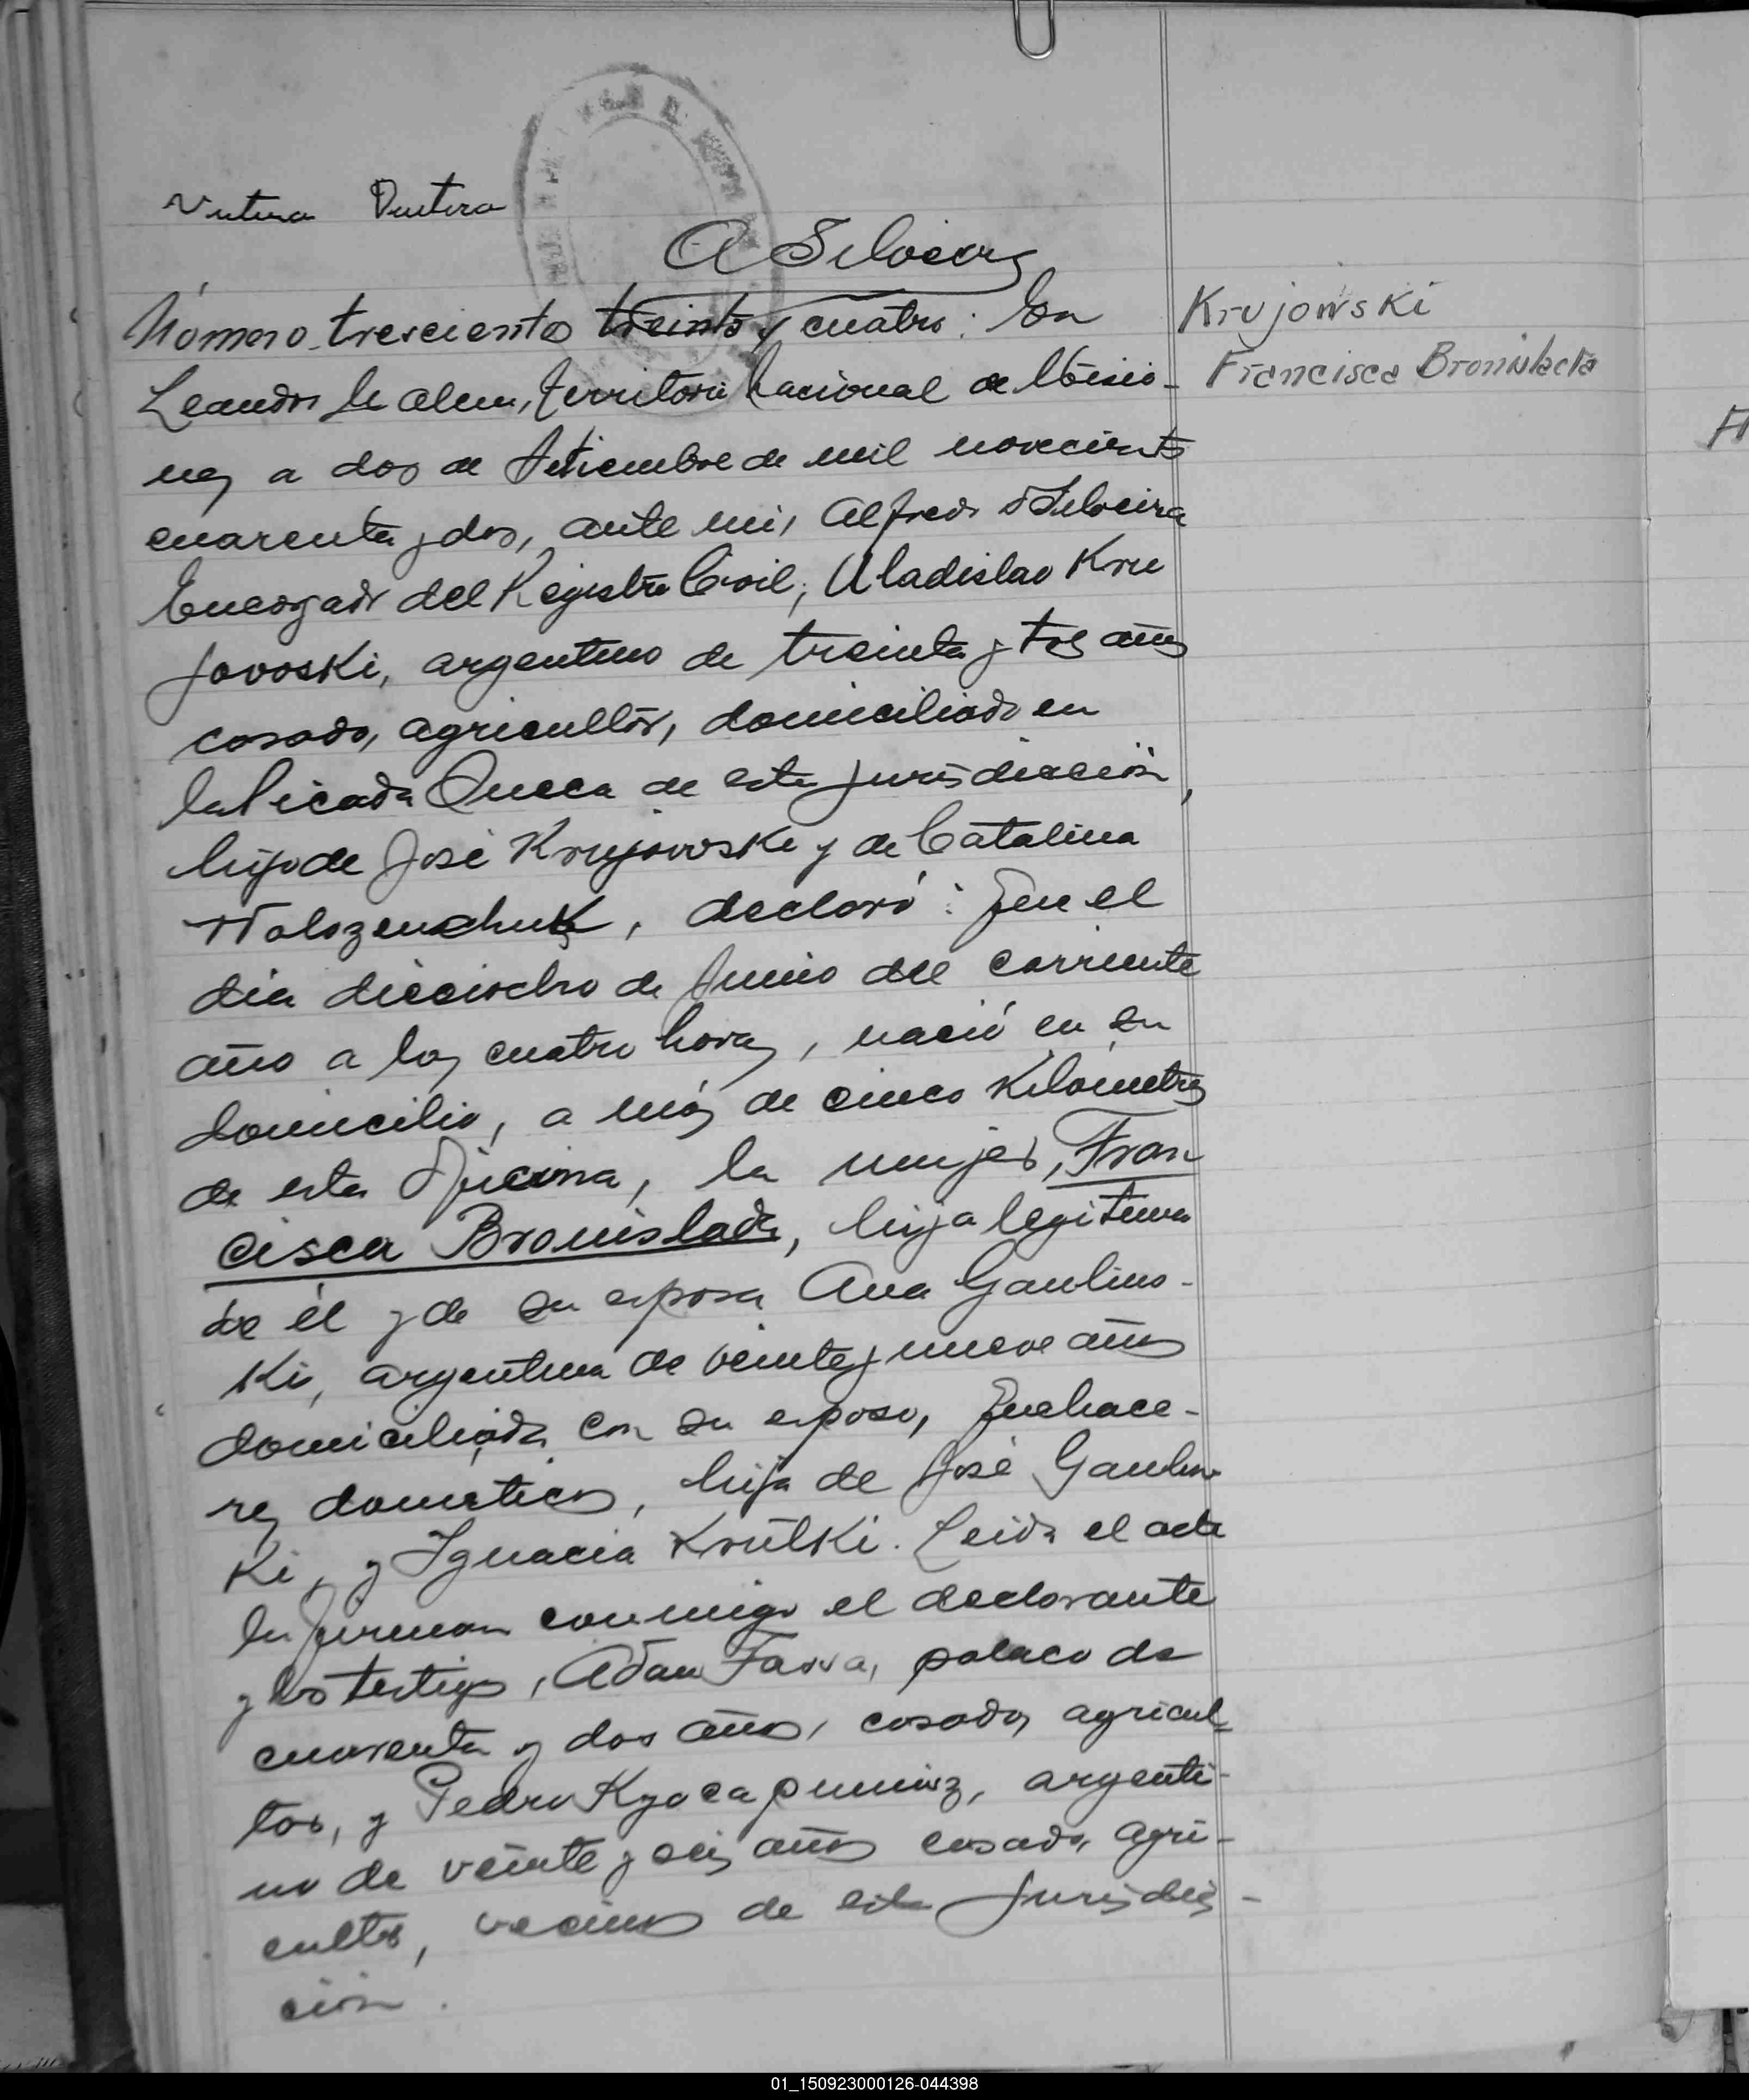 A Silveira
Número trescientos treinta y cuatro: En
Leandro N. Alem, territorio Nacional de Misio-
nes a dos de Setiembre de mil novecientos
cuarenta y dos, ante mi, Alfredo Silveira
Encargado del Registro Civil, Uladislao Kru
jovoski, argentino de treinta y tres años
casado, agricultor, domiciliado en
la Picada de esta jurisdicción,
hijo de José Krujowski y de Catalina
declaró: Que el
dia dieciocho de Junio del corriente
año a las cuatro horas, nació en su
domicilio, a más de cinco Kilómetros
de esta Oficina, la mujer, Fran
cisca Bronislada, hija legitima
de él y de su esposa Ana Gaulins-
ki, argentina de veinte y nueve años
domiciliada con su esposo, quehace-
res domesticos, hija de José Gaulins
Ki, y Ignacia Krulki. Leida el acta
la firman conmigo el declarante
y los testigos, Adan polaco de
cuarenta y dos años, casado, agricul-
tor, y Pedro argenti-
no de veinte y seis años casado, agri-
cultor, vecinos de esta Jurisdic-
ción.
Krujowski
Francisca Bronislada
01_150923000126-044398